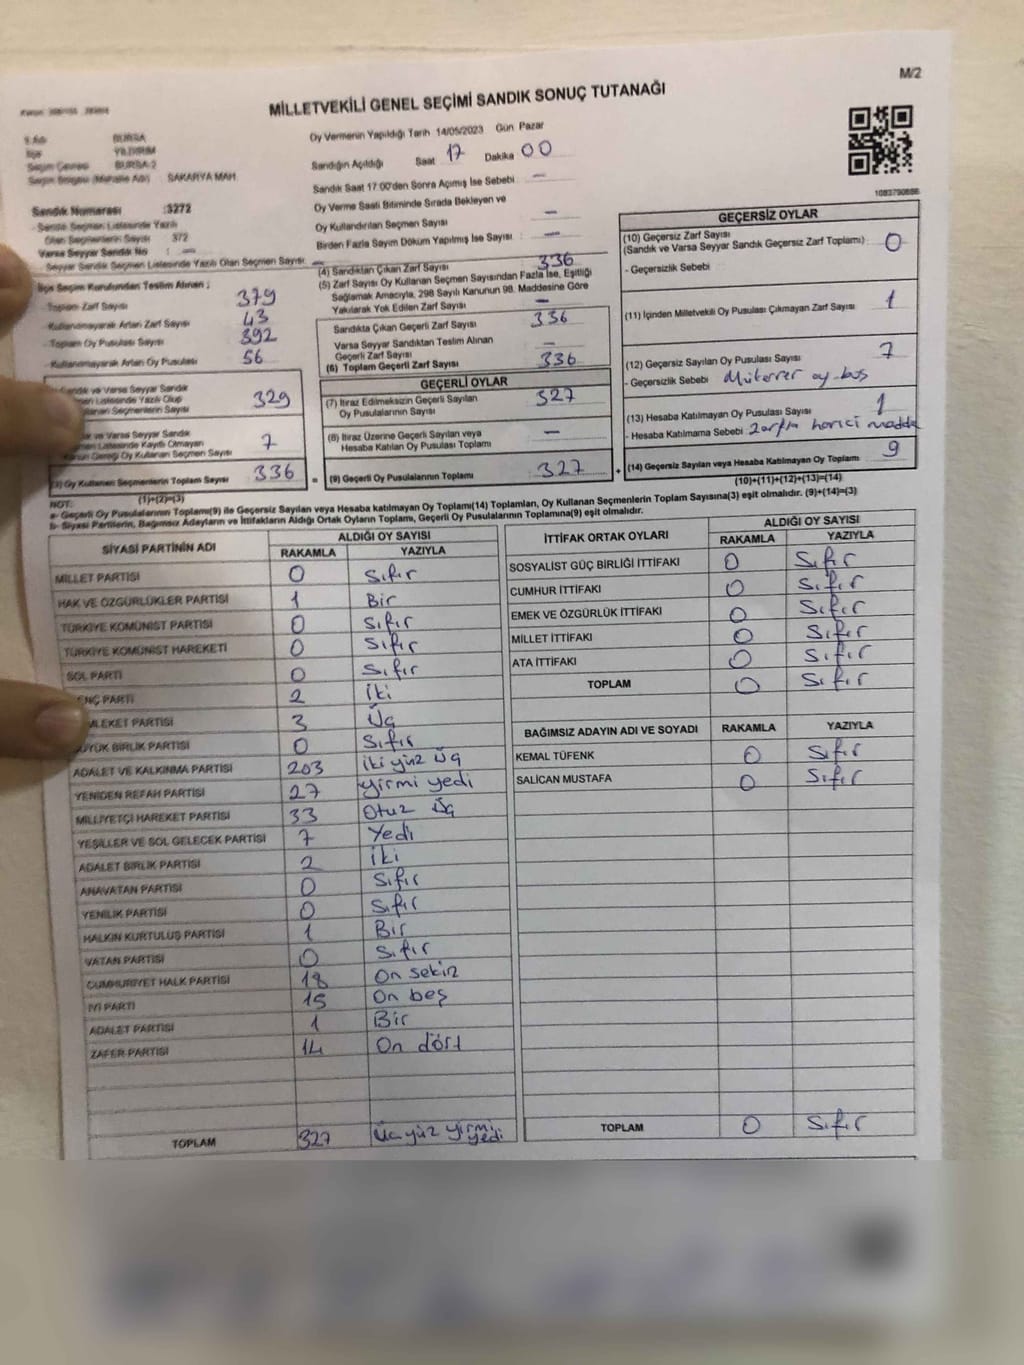 M/2
MİLLETVEKİLİ GENEL SEÇİMİ SANDIK SONUÇ TUTANAĞI
İli BURSA
İlçe YILDIRIM
Seçim Çevresi BURSA-2
Seçim Bölgesi (Mahalle Adı) : SAKARYA MAH.
Sandık Numarası :3272
- Sandık Seçmen Listesinde Yazılı
Olan Seçmenlerin Sayısı 372
Varsa Seyyar Sandık No : —
- Seyyar Sandık Seçmen Listesinde Yazılı Olan Seçmen Sayısı: —
Oy Vermenin Yapıldığı Tarih 14/05/2023 Gün Pazar
Sandığın Açıldığı Saat 17 Dakika 00
Sandık Saat 17:00'den Sonra Açımış İse Sebebi —
Oy Verme Saati Bitiminde Sırada Bekleyen ve
Oy Kullandırılan Seçmen Sayısı —
Birden Fazla Sayım Döküm Yapılmış İse Sayısı : —
1083790886
İlçe Seçim Kurulundan Teslim Alınan ;
- Toplam Zarf Sayısı 379
- Kullanılmayarak Artan Zarf Sayısı 43
- Toplam Oy Pusulası Sayısı 392
- Kullanılmayarak Artan Oy Pusulası 56
Sandık ve Varsa Seyyar Sandık
Listesinde Yazılı Olup
Seçmenlerin Sayısı 329
ve Varsa Seyyar Sandık
Listesinde Kayıtlı Olmayan
Kanun Gereği Oy Kullanan Seçmen Sayısı 7
(3) Oy Kullanan Seçmenlerin Toplam Sayısı 336 =
(1)+(2)=(3)
(4) Sandıktan Çıkan Zarf Sayısı 336
(5) Zarf Sayısı Oy Kullanan Seçmen Sayısından Fazla İse, Eşitliği
Sağlamak Amacıyla, 298 Sayılı Kanunun 98. Maddesine Göre
Yakılarak Yok Edilen Zarf Sayısı —
Sandıkta Çıkan Geçerli Zarf Sayısı 336
Varsa Seyyar Sandıktan Teslim Alınan
Geçerli Zarf Sayısı —
(6) Toplam Geçerli Zarf Sayısı 336
GEÇERLİ OYLAR
(7) İtiraz Edilmeksizin Geçerli Sayılan
Oy Pusulalarının Sayısı 327
(8) İtiraz Üzerine Geçerli Sayılan veya
Hesaba Katılan Oy Pusulaları Toplamı —
(9) Geçerli Oy Pusulalarının Toplamı 327 +
GEÇERSİZ OYLAR
(10) Geçersiz Zarf Sayısı
(Sandık ve Varsa Seyyar Sandık Geçersiz Zarf Toplamı) 0
- Geçersizlik Sebebi
(11) İçinden Milletvekili Oy Pusulası Çıkmayan Zarf Sayısı 1
(12) Geçersiz Sayılan Oy Pusulası Sayısı 7
- Geçersizlik Sebebi Mükerrer oy-boş
(13) Hesaba Katılmayan Oy Pusulası Sayısı 1
- Hesaba Katılmama Sebebi Zarfta harici madde
(14) Geçersiz Sayılan veya Hesaba Katılmayan Oy Toplamı 9
(10)+(11)+(12)+(13)=(14)
NOT:
a- Geçerli Oy Pusulalarının Toplamı(9) ile Geçersiz Sayılan veya Hesaba katılmayan Oy Toplamı(14) Toplamları, Oy Kullanan Seçmenlerin Toplam Sayısına(3) eşit olmalıdır. (9)+(14)=(3)
b- Siyasi Partilerin, Bağımsız Adayların ve İttifakların Aldığı Ortak Oyların Toplamı, Geçerli Oy Pusulalarının Toplamına(9) eşit olmalıdır.
SİYASİ PARTİNİN ADI ALDIĞI OY SAYISI
RAKAMLA YAZIYLA
MİLLET PARTİSİ 0 Sıfır
HAK VE ÖZGÜRLÜKLER PARTİSİ 1 Bir
TÜRKİYE KOMÜNİST PARTİSİ 0 Sıfır
TÜRKİYE KOMÜNİST HAREKETİ 0 Sıfır
SOL PARTİ 0 Sıfır
GENÇ PARTİ 2 İki
MEMLEKET PARTİSİ 3 Üç
BÜYÜK BİRLİK PARTİSİ 0 Sıfır
ADALET VE KALKINMA PARTİSİ 203 İki yüz üç
YENİDEN REFAH PARTİSİ 27 Yirmi yedi
MİLLİYETÇİ HAREKET PARTİSİ 33 Otuz üç
YEŞİLLER VE SOL GELECEK PARTİSİ 7 Yedi
ADALET BİRLİK PARTİSİ 2 İki
ANAVATAN PARTİSİ 0 Sıfır
YENİLİK PARTİSİ 0 Sıfır
HALKIN KURTULUŞ PARTİSİ 1 Bir
VATAN PARTİSİ 0 Sıfır
CUMHURİYET HALK PARTİSİ 18 On sekiz
İYİ PARTİ 15 On beş
ADALET PARTİSİ 1 Bir
ZAFER PARTİSİ 14 On dört
TOPLAM 327 Üç yüz yirmi yedi
İTTİFAK ORTAK OYLARI ALDIĞI OY SAYISI
RAKAMLA YAZIYLA
SOSYALİST GÜÇ BİRLİĞİ İTTİFAKI 0 Sıfır
CUMHUR İTTİFAKI 0 Sıfır
EMEK VE ÖZGÜRLÜK İTTİFAKI 0 Sıfır
MİLLET İTTİFAKI 0 Sıfır
ATA İTTİFAKI 0 Sıfır
TOPLAM 0 Sıfır
BAĞIMSIZ ADAYIN ADI VE SOYADI RAKAMLA YAZIYLA
KEMAL TÜFENK 0 Sıfır
SALİCAN MUSTAFA 0 Sıfır
TOPLAM 0 Sıfır